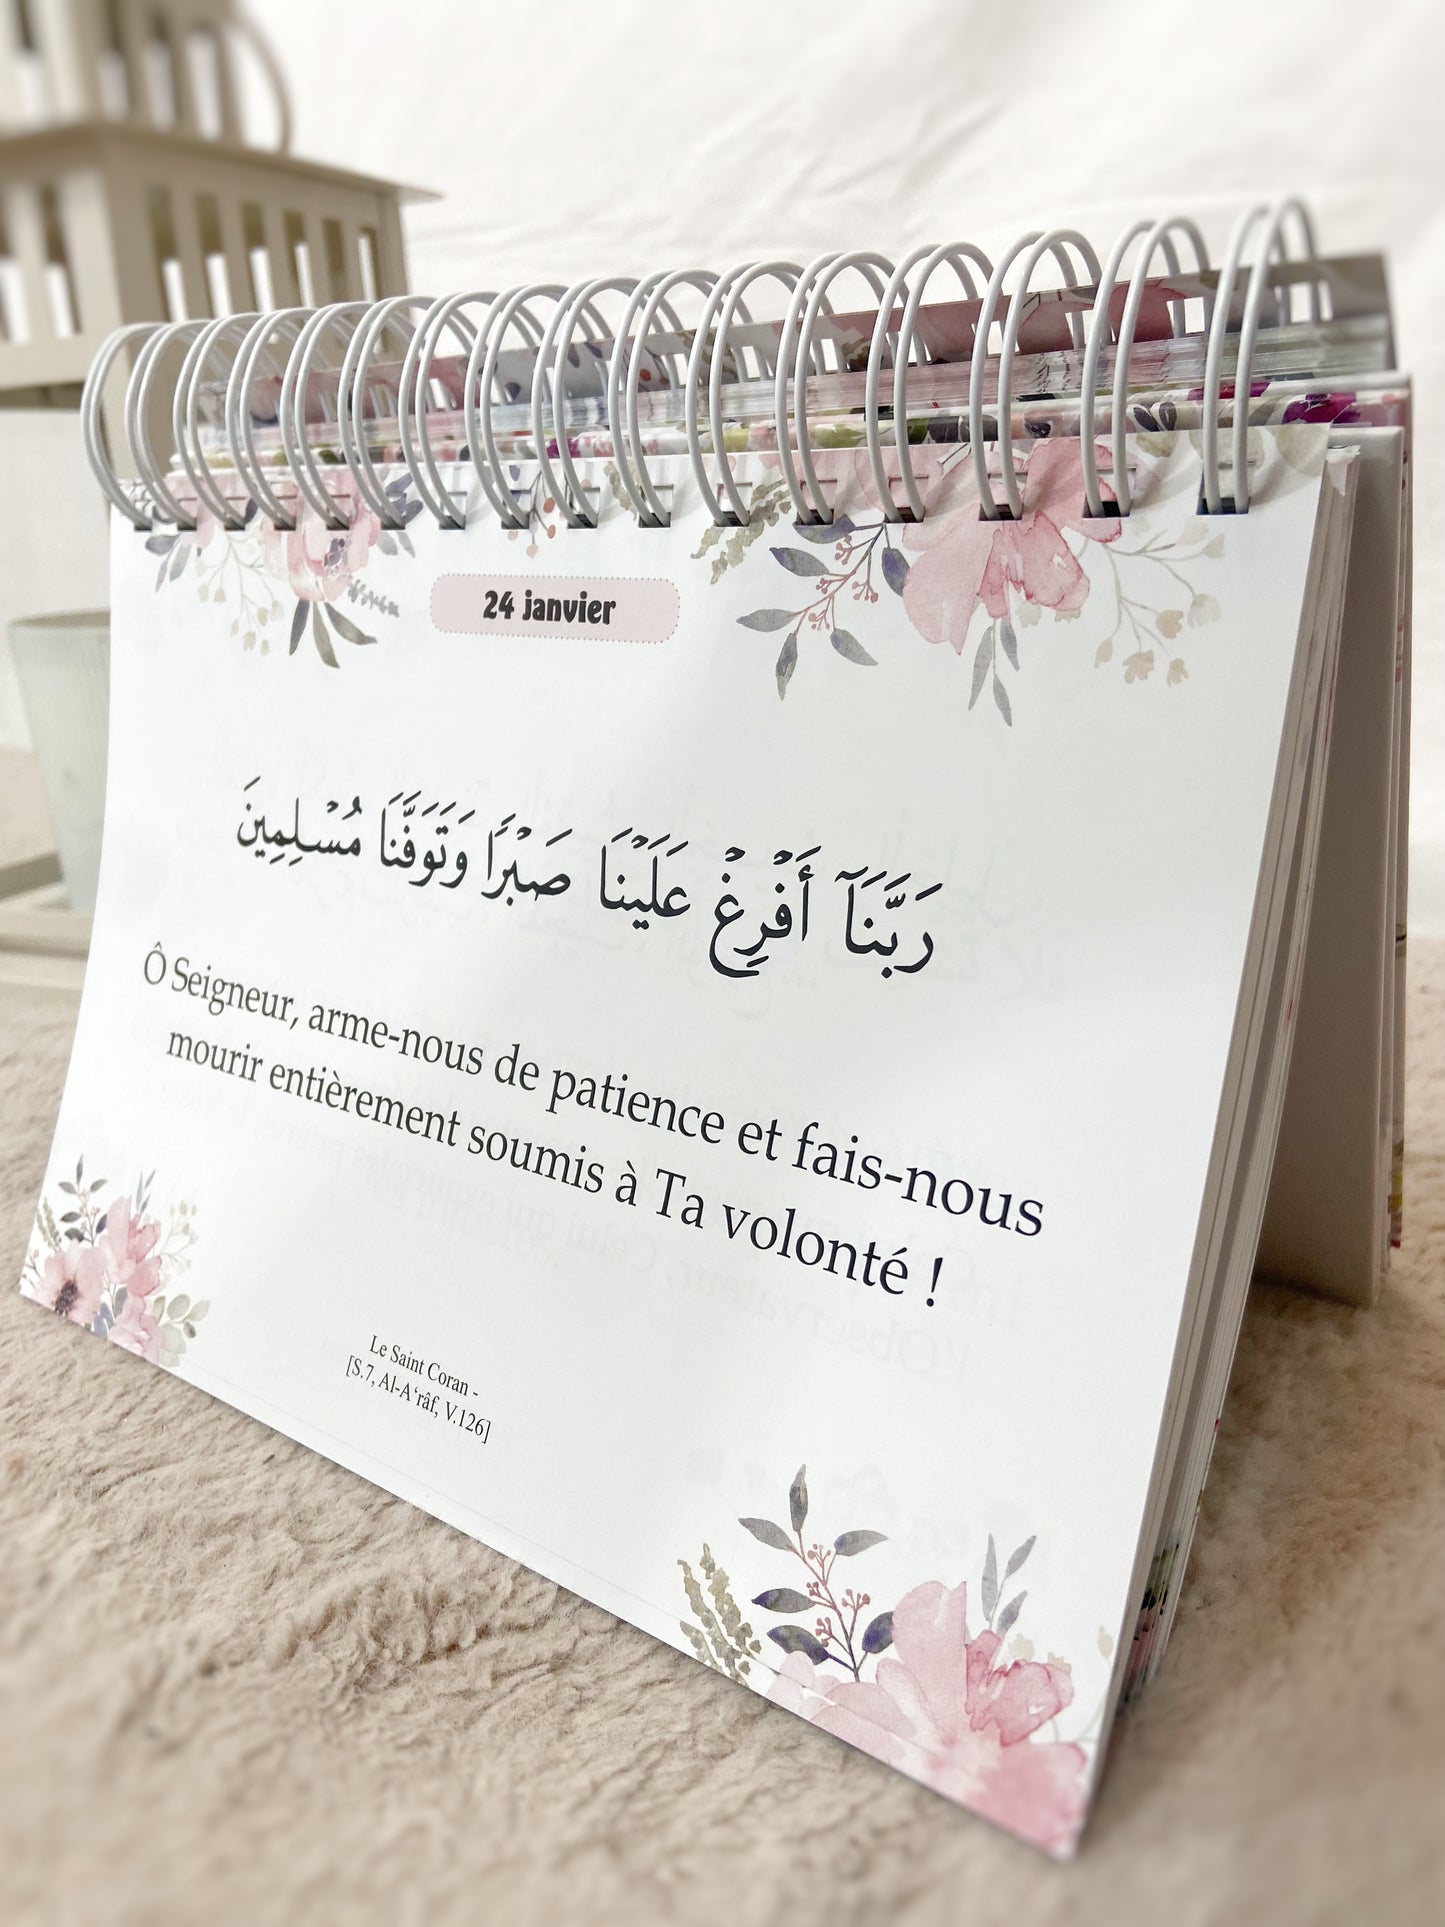 24 janvier
رَبَّنَآ أَفْرِغْ عَلَيْنَا صَبْرًا وَتَوَفَّنَا مُسْلِمِينَ
Ô Seigneur, arme-nous de patience et fais-nous
mourir entièrement soumis à Ta volonté !
Le Saint Coran -
[S.7, Al-A‘râf, V.126]